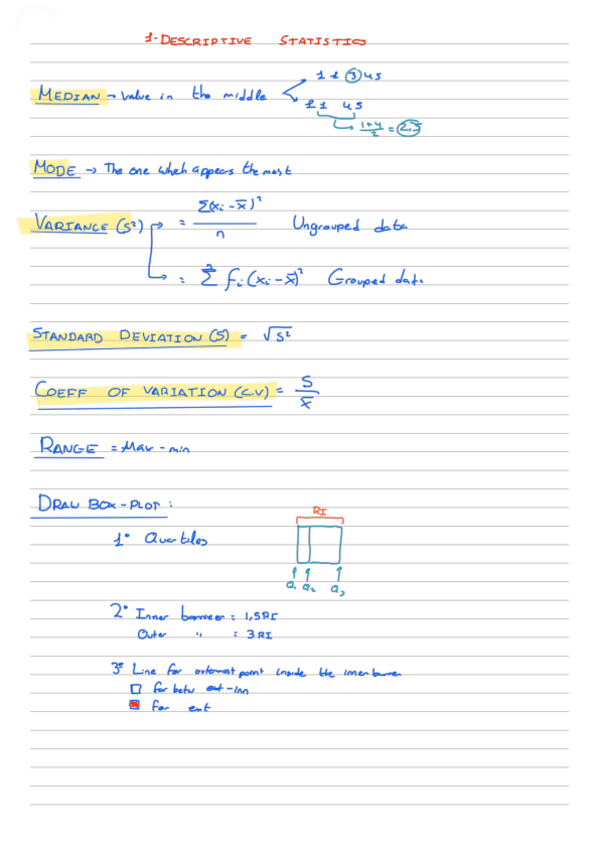 1-DESCRIPTIVE STATISTICS
MEDIAN → Value in the middle
1 1 3 4 5
1 1 4 5
1+4/2 = 2,5
MODE → The one which appears the most
VARIANCE (S²) = Σ(xi - x̄)²/n Ungrouped data
= Σ fi (xi - x̄)² Grouped data
STANDARD DEVIATION (S) = √S²
COEFF OF VARIATION (C.V) = S/x̄
RANGE = Max - min
DRAW BOX-PLOT :
RI
1º Quartiles
Q1 Q2 Q3
2º Inner barrier : 1,5RI
Outer " : 3 RI
3º Line for outermost point inside the inner barrier
for betw out-inn
for ext